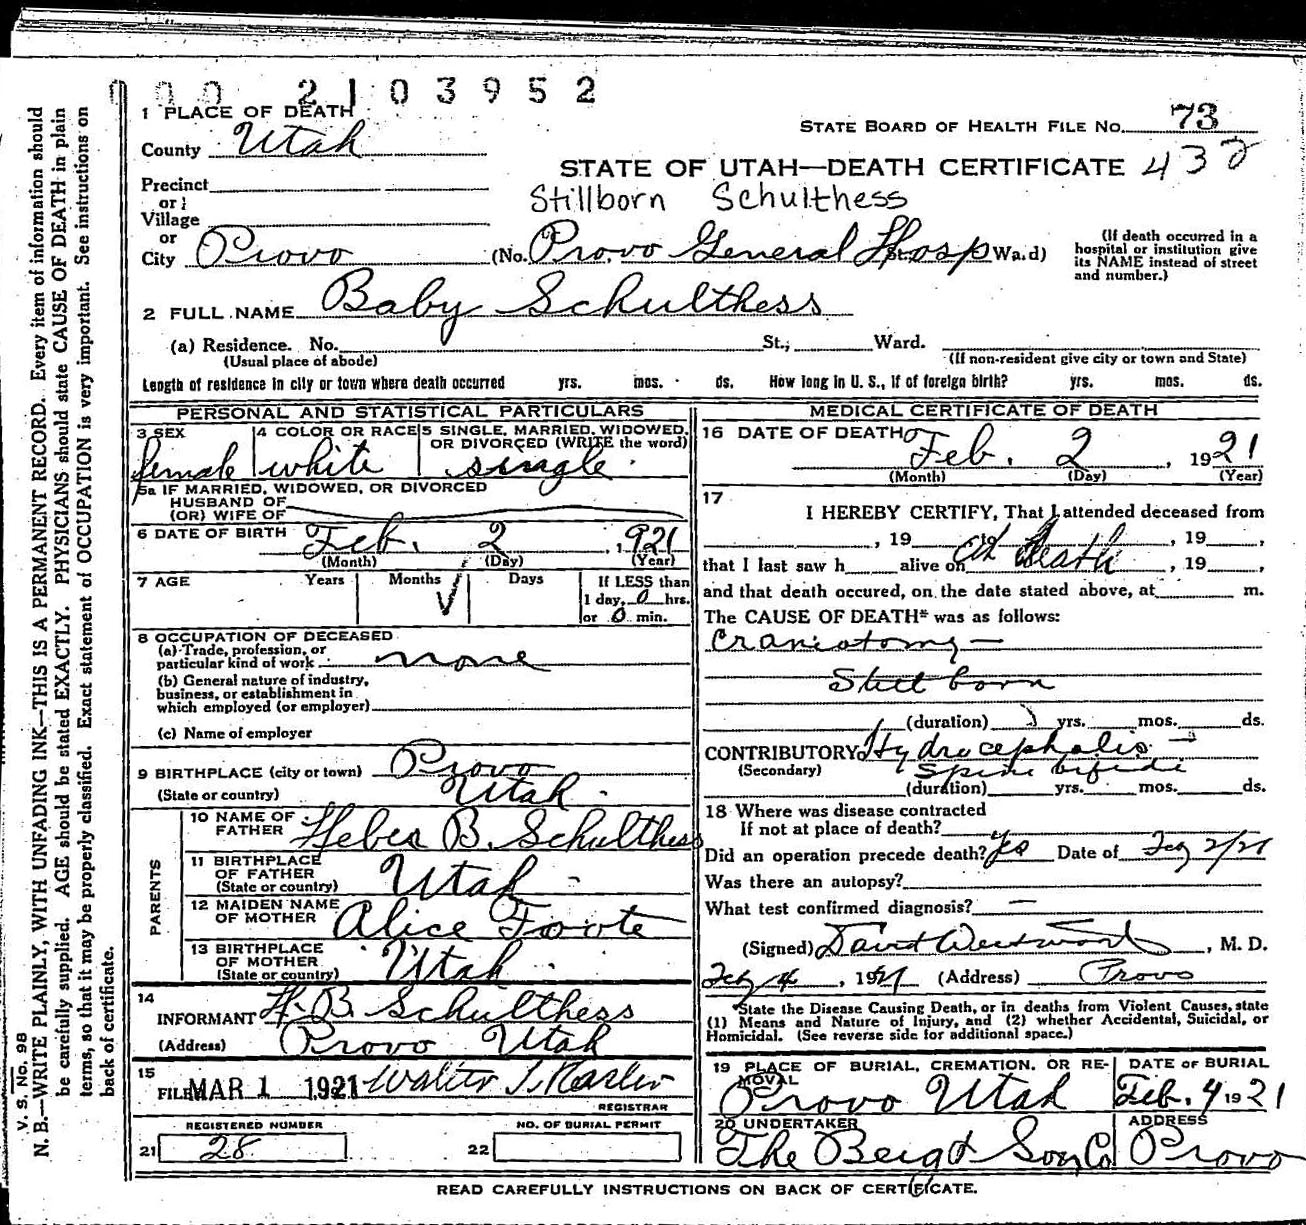 000 2103952
1 PLACE OF DEATH
STATE BOARD OF HEALTH FILE NO. 73
County Utah
STATE OF UTAH—DEATH CERTIFICATE 432
Precinct
or
Village
Stillborn Schulthess
or
City Provo (No. Provo General Hosp St. Ward)
(If death occurred in a hospital or institution give its NAME instead of street and number.)
2 FULL NAME Baby Schulthess
(a) Residence. No. St.; Ward.
(Usual place of abode) (If non-resident give city or town and State)
Length of residence in city or town where death occurred yrs. mos. ds. How long in U. S., if of foreign birth? yrs. mos. ds.
PERSONAL AND STATISTICAL PARTICULARS
3 SEX female
4 COLOR OR RACE white
5 SINGLE, MARRIED, WIDOWED, OR DIVORCED (WRITE the word) single
5a IF MARRIED, WIDOWED, OR DIVORCED
HUSBAND OF
(OR) WIFE OF
6 DATE OF BIRTH Feb. 2, 1921
(Month) (Day) (Year)
7 AGE Years Months Days If LESS than
1 day, 0 hrs.
or 0 min.
8 OCCUPATION OF DECEASED
(a) Trade, profession, or
particular kind of work none
(b) General nature of industry,
business, or establishment in
which employed (or employer)
(c) Name of employer
9 BIRTHPLACE (city or town) Provo
(State or country) Utah
PARENTS
10 NAME OF FATHER Heber B. Schulthess
11 BIRTHPLACE OF FATHER (State or country) Utah
12 MAIDEN NAME OF MOTHER Alice Foote
13 BIRTHPLACE OF MOTHER (State or country) Utah
14
INFORMANT H. B. Schulthess
(Address) Provo Utah
15
FILED MAR 1 1921 Walter T.
REGISTRAR
REGISTERED NUMBER
21 28
NO. OF BURIAL PERMIT
22
MEDICAL CERTIFICATE OF DEATH
16 DATE OF DEATH Feb. 2, 1921
(Month) (Day) (Year)
17
I HEREBY CERTIFY, That I attended deceased from
, 19 , 19 ,
that I last saw h alive on at Death , 19 ,
and that death occured, on the date stated above, at m.
The CAUSE OF DEATH* was as follows:
Craniotomy —
Still born
(duration) yrs. mos. ds.
CONTRIBUTORY Hydrocephalis —
(Secondary) Spine bifida
(duration) yrs. mos. ds.
18 Where was disease contracted
If not at place of death?
Did an operation precede death? Yes Date of Feb 2/21
Was there an autopsy?
What test confirmed diagnosis? —
(Signed) David Westwood, M. D.
Feb 4, 1921 (Address) Provo
*State the Disease Causing Death, or in deaths from Violent Causes, state
(1) Means and Nature of Injury, and (2) whether Accidental, Suicidal, or
Homicidal. (See reverse side for additional space.)
19 PLACE OF BURIAL, CREMATION, OR REMOVAL Provo Utah
DATE OF BURIAL Feb. 4 1921
20 UNDERTAKER The Berg & Son Co
ADDRESS Provo
READ CAREFULLY INSTRUCTIONS ON BACK OF CERTIFICATE.
V. S. No. 98
N. B.—WRITE PLAINLY, WITH UNFADING INK—THIS IS A PERMANENT RECORD. Every item of information should
be carefully supplied. AGE should be stated EXACTLY. PHYSICIANS should state CAUSE OF DEATH in plain
terms, so that it may be properly classified. Exact statement of OCCUPATION is very important. See instructions on
back of certificate.